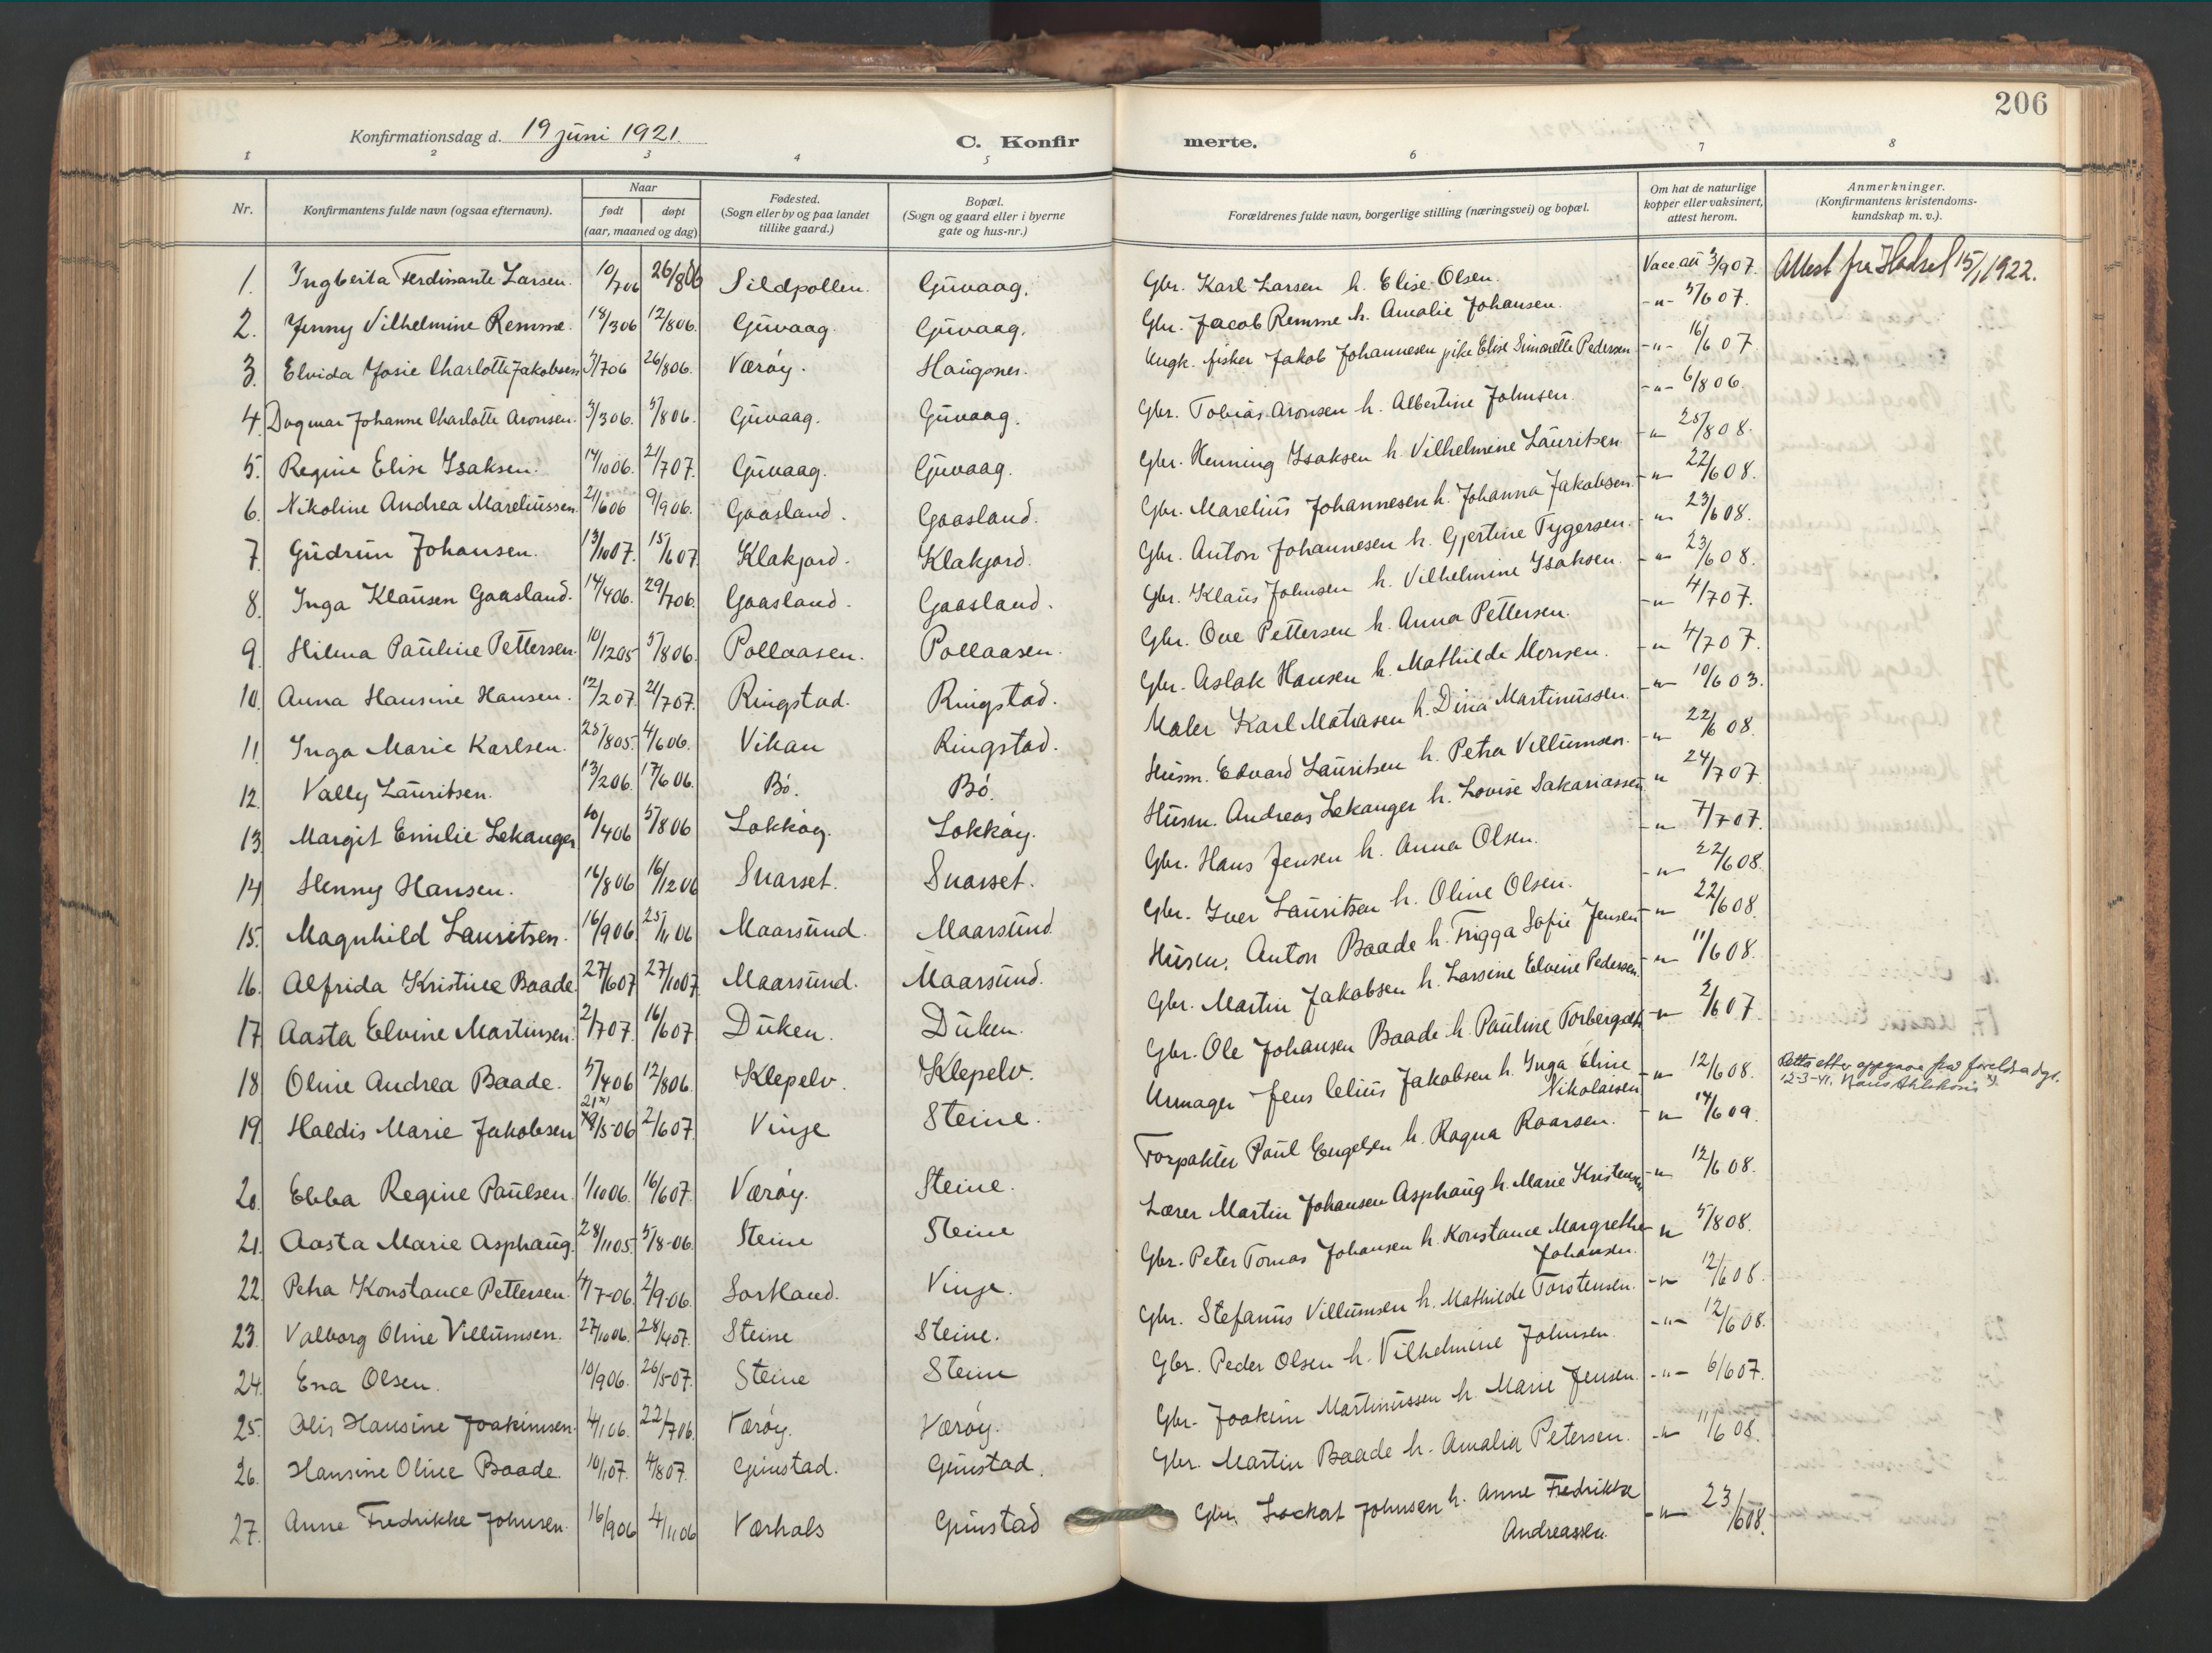 206
Konfirmationsdag d. 19 juni 1921.
C. Konfirmerte.
1 2 3 4 5 6 7 8
Nr. | Konfirmantens fulde navn (ogsaa efternavn). | Naar født | døpt (aar, maaned og dag) | Fødested. (Sogn eller by og paa landet tillike gaard.) | Bopæl. (Sogn og gaard eller i byerne gate og hus-nr.) | Forældrenes fulde navn, borgerlige stilling (næringsvei) og bopæl. | Om hat de naturlige kopper eller vaksinert, attest herom. | Anmerkninger. (Konfirmantens kristendoms-kundskap m. v.).
1. Ingberta Ferdinante Larsen. 10/706 26/806 Sildpollen. Guvaag. Gbr. Karl Larsen h. Elise Olsen. Vacc. att 3/907. Attest fra Hadsel 15/1 1922.
2. Jenny Vilhelmine Remme. 18/306 12/806. Guvaag Guvaag. Gbr. Jacob Remme h. Amalie Johansen. -"- 5/607.
3. Elvida Josie Charlotte Jakobsen 3/706 26/806. Værøy. Haugsnes. Ungk. fisker Jakob Johannesen pike Elise Simonette Pedersen -"- 16/607
4. Dagmar Johanne Charlotte Aronsen. 3/306. 5/806. Guvaag. Guvaag. Gbr. Tobias Aronsen h. Albertine Johnsen. -"- 6/806.
5. Regine Elise Isaksen. 14/1006. 21/707. Guvaag. Guvaag. Gbr. Henning Isaksen h. Vilhelmine Lauritsen -"- 25/808.
6. Nikoline Andrea Mareliussen. 21/606 9/906. Gaasland. Gaasland. Gbr. Marelius Johannesen h. Johanna Jakobsen. -"- 22/608.
7. Gudrun Johansen. 13/1007. 15/607 Klakjord. Klakjord. Gbr. Anton Johannesen h. Gjertine Tygersen. -"- 23/608.
8. Inga Klausen Gaasland. 14/406. 29/706. Gaasland. Gaasland. Gbr. Klaus Johnsen h. Vilhelmine Isaksen. -"- 23/608.
9. Hilma Pauline Pettersen. 10/1205 5/806. Pollaasen. Pollaasen. Gbr. Ove Pettersen h. Anna Pettersen. -"- 4/707.
10. Anna Hansine Hansen. 12/207. 21/707. Ringstad. Ringstad. Gbr. Aslak Hansen h. Mathilde Monsen. -"- 4/707.
11. Inga Marie Karlsen. 25/805. 4/606. Vikan Ringstad. Maler Karl Matiasen h. Dina Martinussen. -"- 10/603.
12. Vally Lauritsen. 13/206. 17/606. Bö. Bö. Husm. Edvard Lauritsen h. Petra Villumsen. -"- 22/608.
13. Margit Emilie Lekanger 10/406 5/806 Lokköy. Lokköy. Husm. Andreas Lekanger h. Lovise Sakariassen " 24/707.
14. Henny Hansen. 16/806 16/1206 Snarset. Snarset. Gbr. Hans Jensen h. Anna Olsen. -"- 7/707.
15. Magnhild Lauritsen. 16/906. 25/1106 Maarsund. Maarsund. Gbr. Iver Lauritsen h. Oline Olsen. -"- 22/608.
16. Alfrida Kristine Baade. 27/607 27/1007 Maarsund. Maarsund. Husm. Anton Baade h. Frigga Sofie Jensen -"- 22/608.
17. Aasta Elvine Martinsen. 2/707. 16/607. Duken. Duken. Gbr. Martin Jakobsen h. Larsine Elvine Pedersen. -"- 11/608.
18. Oline Andrea Baade. 5/406 12/806. Klepelv. Klepelv. Gbr. Ole Johansen Baade h. Pauline Torbergsdt. -"- 2/607
19. Haldis Marie Jakobsen 21 x) 19/5-06 2/607. Vinje Steine. Urmager Jens Celius Jakobsen h. Inga Eline Nikolaisen -"- 12/608. Rettet efter opgave fra 12-3-41.
20. Ebba Regine Paulsen. 1/1006. 16/607. Værøy. Steine. Forpakter Paul Engelsen h. Ragna Roarsen. -"- 14/609.
21. Aasta Marie Asphaug. 28/1105. 5/8-06. Steine Steine Lærer Martin Johansen Asphaug h. Marie Kristensen -"- 12/608.
22. Petra Konstance Pettersen. 4/7-06. 2/9-06. Sortland. Vinje. Gbr. Peter Tomas Johansen h. Konstance Margrethe Johansen. " 5/808.
23. Valborg Oline Villumsen. 27/1006. 28/407. Steine Steine. Gbr. Stefanus Villumsen h. Mathilde Torstensen. -"- 12/608.
24. Ena Olsen. 10/906. 26/5-07. Steine Steine Gbr. Peder Olsen h. Vilhelmine Johnsen. -"- 12/608.
25. Alis Hansine Joakimsen. 4/106. 22/706. Værøy. Værøy. Gbr. Joakim Martinussen h. Marie Jensen. -"- 6/607.
26. Hansine Oline Baade. 10/107. 4/807. Guustad. Guustad. Gbr. Martin Baade h. Amalia Petersen. -"- 11/608.
27. Anne Fredrikke Johnsen. 16/906 4/1106 Værhals Guustad Gbr. Lockart Johnsen h. Anne Fredrikke Andreassen. -"- 23/608.